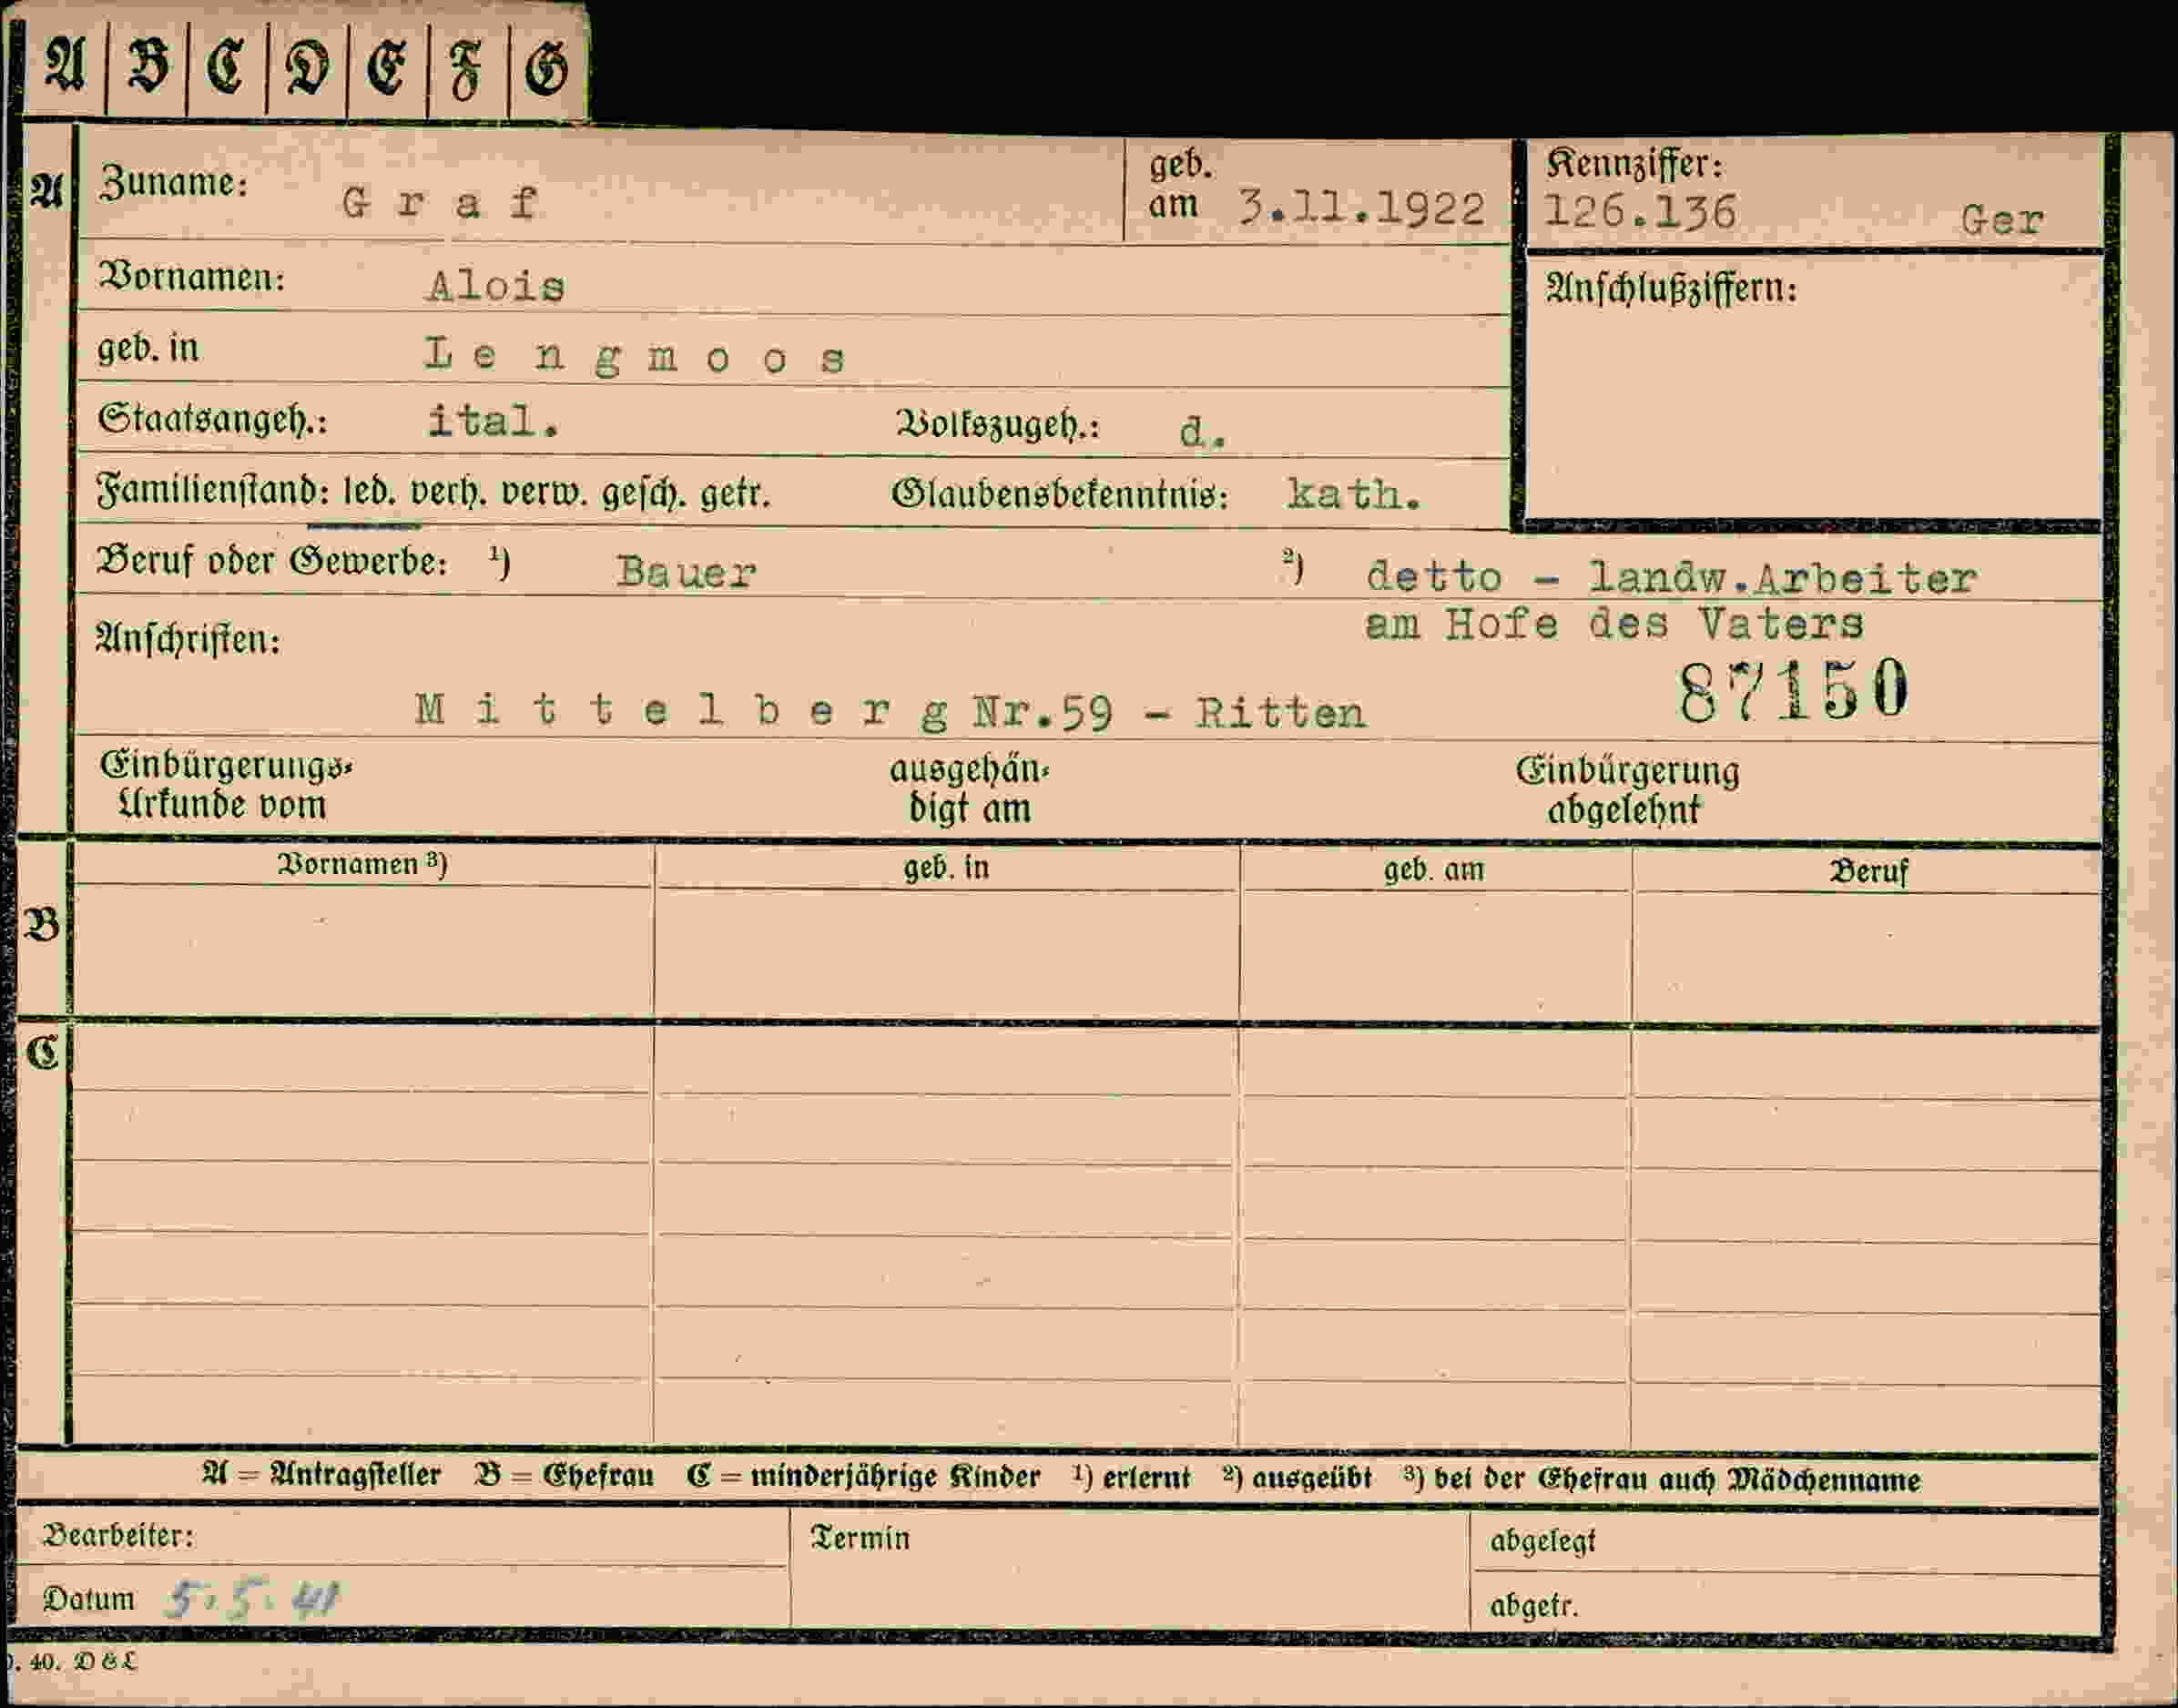 A B C D E F G
A Zuname: Graf geb. am 3.11.1922 Kennziffer: 126.136 Ger
Vornamen: Alois Anschlußziffern:
geb. in Lengmoos
Staatsangeh.: ital. Volkszugeh.: d.
Familienstand: led. verh. verw. gesch. getr. Glaubensbekenntnis: kath.
Beruf oder Gewerbe: 1) Bauer 2) detto - landw.Arbeiter
am Hofe des Vaters
Anschriften:
87150
Mittelberg Nr.59 - Ritten
Einbürgerungs- ausgehän- Einbürgerung
Urkunde vom digt am abgelehnt
Vornamen 3) geb. in geb. am Beruf
B
C
A = Antragsteller B = Ehefrau C = minderjährige Kinder 1) erlernt 2) ausgeübt 3) bei der Ehefrau auch Mädchenname
Bearbeiter: Termin abgelegt
Datum 5.5.41 abgetr.
. 40. D & L